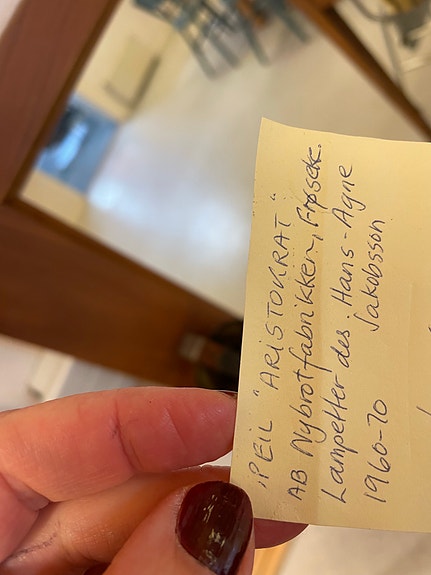 SPEIL "ARISTOKRAT"
AB Nybrotfabrikken, Frøseke.
Lampetter des. Hans-Agne
Jakobsson
1960-70